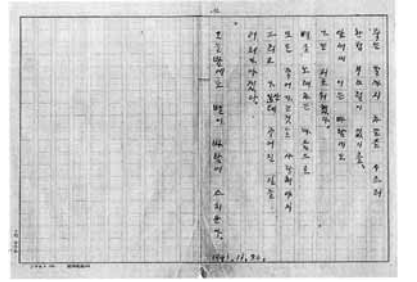 죽는 날까지 하늘을 우르러
한점 부끄럼이 없기를,
잎새에 이는 바람에도
나는 괴로워했다.
별을 노래하는 마음으로
모든 죽어가는것을 사랑해야지
그리고 나한테 주어진 길을
거러가야겠다.
오늘밤에도 별이 바람에 스치운다.
1941.11.20.